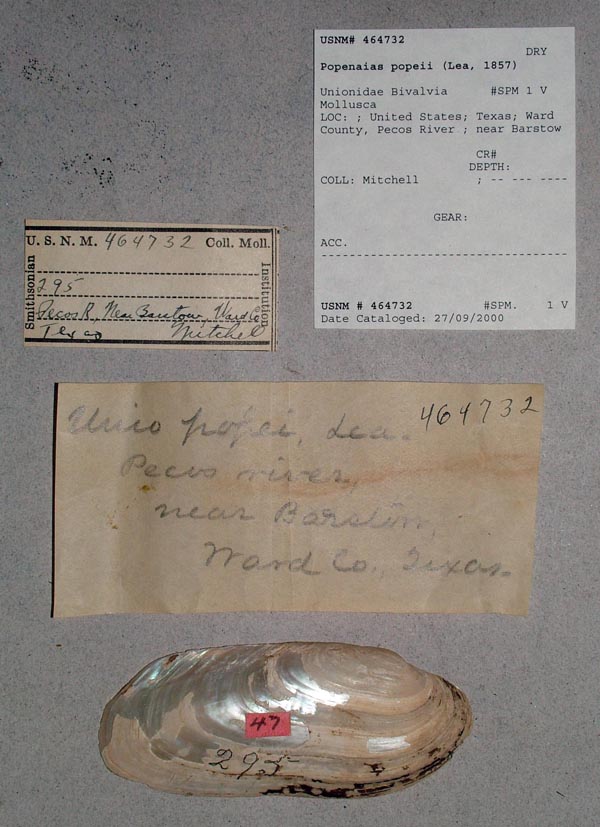 USNM# 464732
DRY
Popenaias popeii (Lea, 1857)
Unionidae Bivalvia #SPM 1 V
Mollusca
LOC: ; United States; Texas; Ward
County, Pecos River ; near Barstow
CR#
DEPTH:
COLL: Mitchell ; -- --- ----
GEAR:
ACC.
USNM # 464732 #SPM. 1 V
Date Cataloged: 27/09/2000
U. S. N. M. 464732 Coll. Moll.
Smithsonian
Institution
295
Pecos R. Near Barstow, Ward Co
Texas Mitchel
464732
Unio popei, Lea.
Pecos river,
near Barstow,
Ward Co., Texas.
47
295